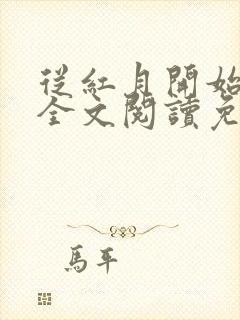 從紅月開始
全文閱讀免
馬平